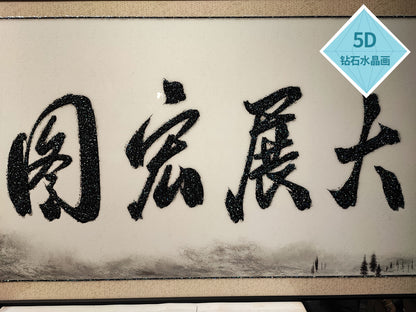 大展宏图
5D
钻石水晶画